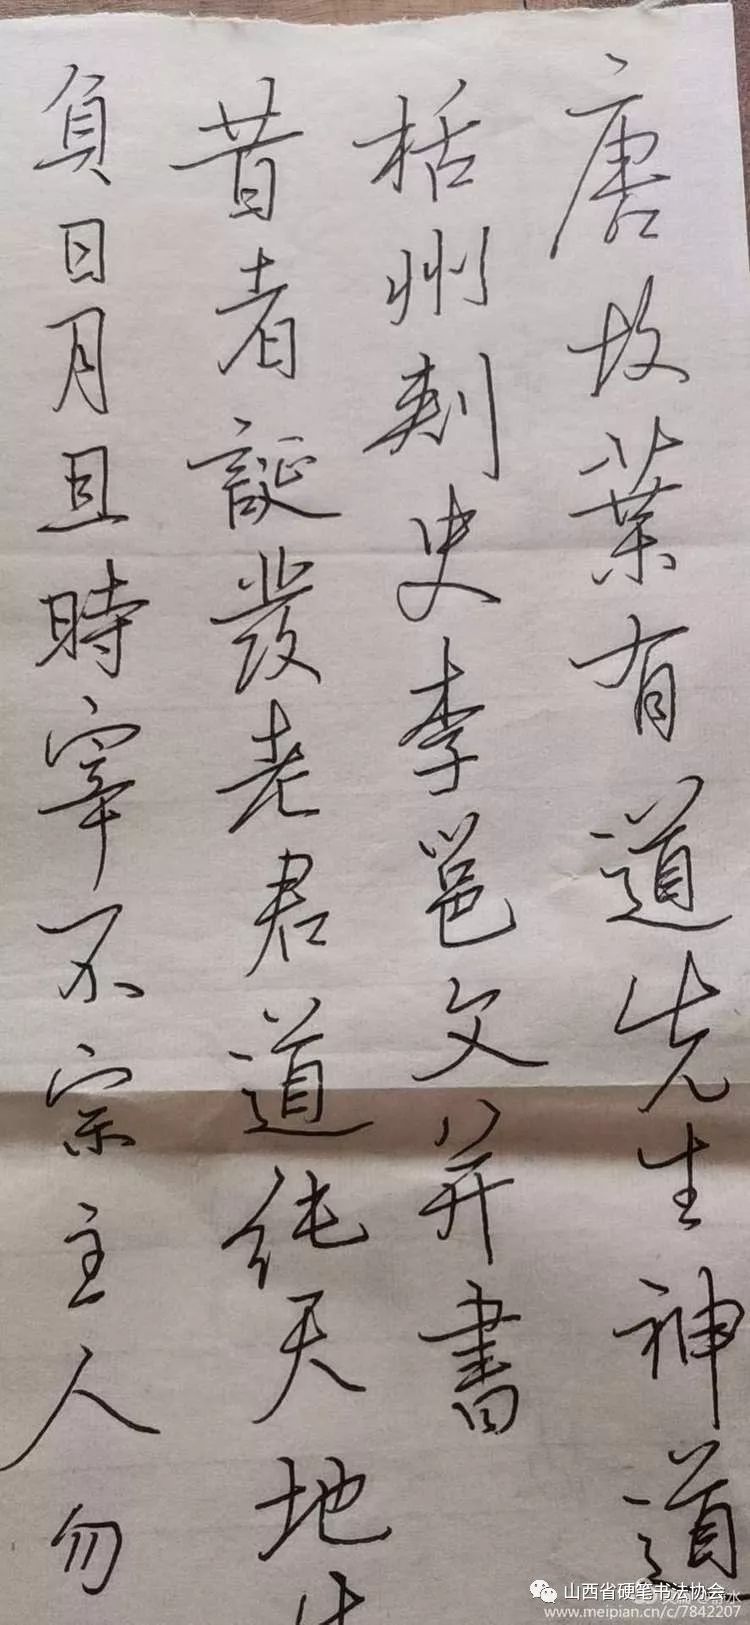 唐故葉有道先生神道
栝州刺史李邕文并書
昔者誕發老君道純天地
負日月且時宰不宗主人勿
山西省硬笔书法协会
www.meipian.cn/c/7842207